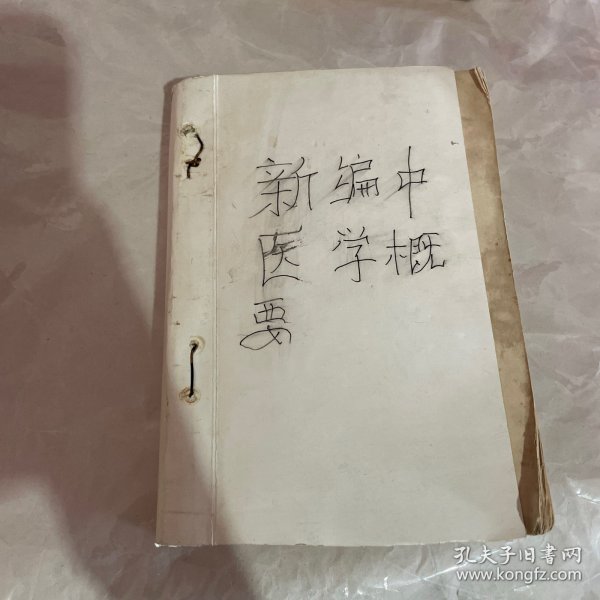 新编中
医学概
要
孔夫子旧书网
www.kongfz.com